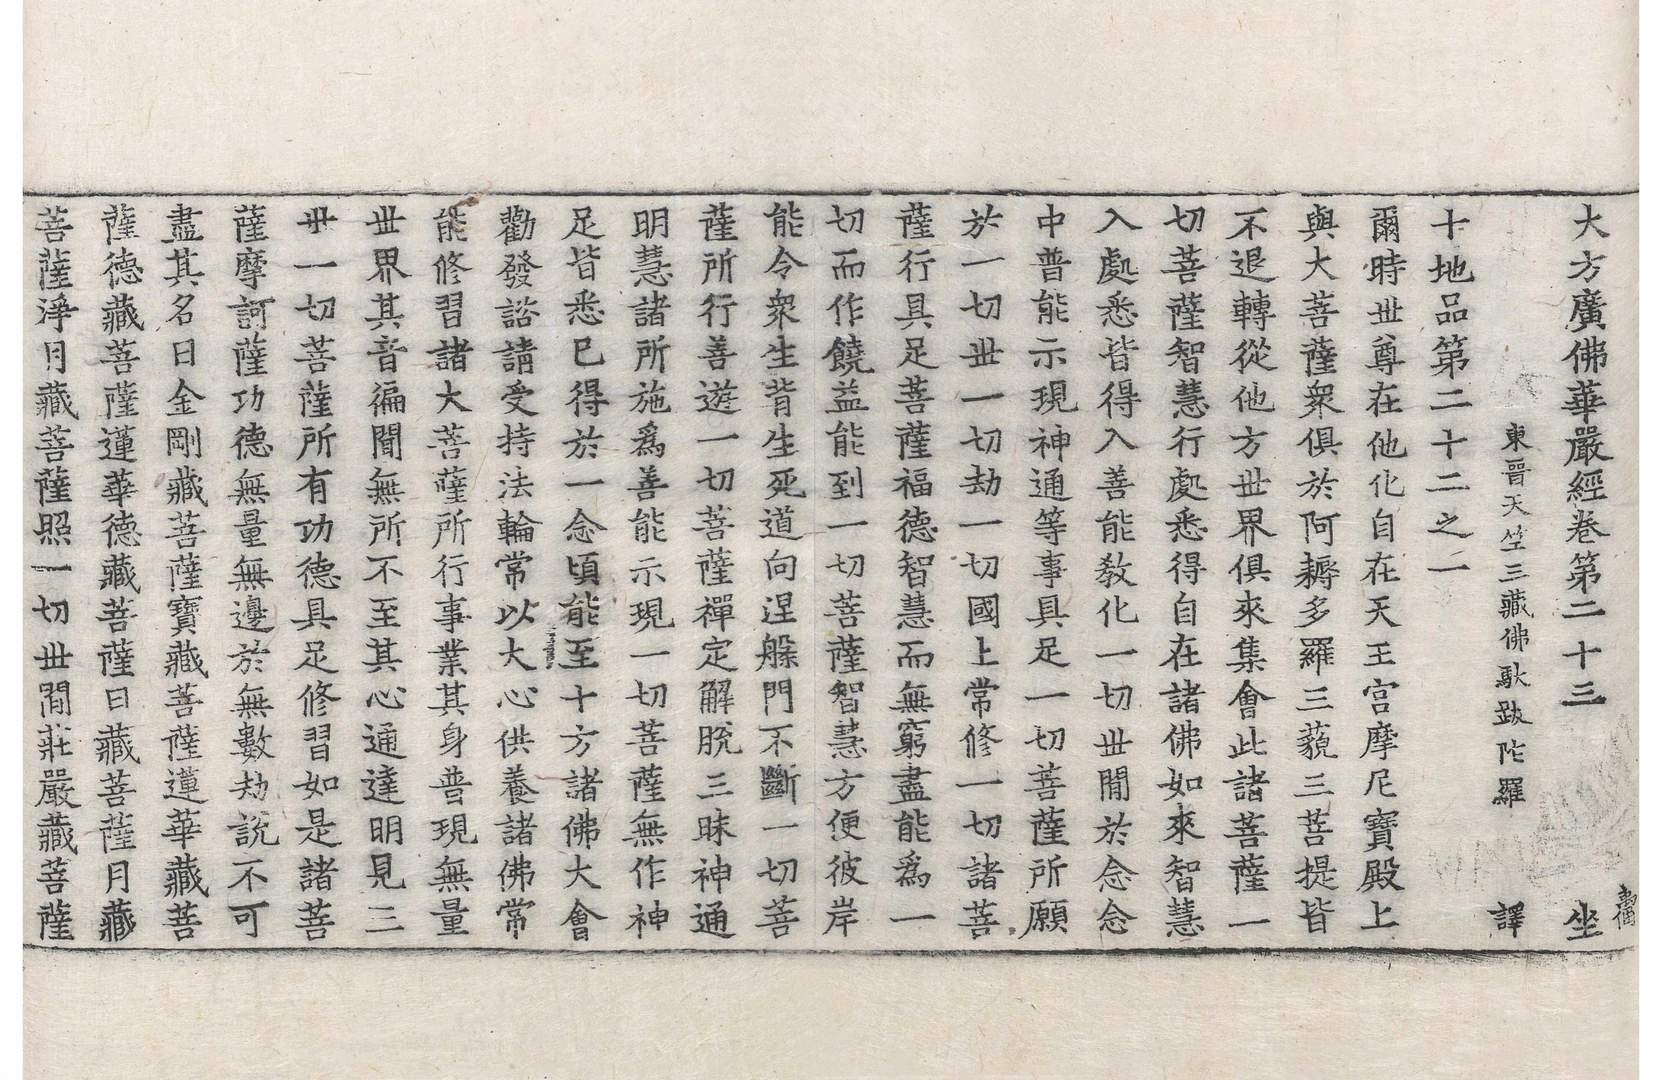 大方廣佛華嚴經卷第二十三　坐
東晉天竺三藏佛馱跋陀羅　譯
十地品第二十二之一
爾時世尊在他化自在天王宮摩尼寶殿上
與大菩薩衆俱於阿耨多羅三藐三菩提皆
不退轉從他方世界俱來集會此諸菩薩一
切菩薩智慧行處悉得自在諸佛如來智慧
入處悉皆得入善能教化一切世閒於念念
中普能示現神通等事具足一切菩薩所願
於一切世一切劫一切國土常修一切諸菩
薩行具足菩薩福德智慧而無窮盡能爲一
切而作饒益能到一切菩薩智慧方便彼岸
能令衆生背生死道向涅槃門不斷一切菩
薩所行善遊一切菩薩禪定解脫三昧神通
明慧諸所施爲善能示現一切菩薩無作神
足皆悉已得於一念頃能至十方諸佛大會
勸發諮請受持法輪常以大心供養諸佛常
能修習諸大菩薩所行事業其身普現無量
世界其音徧聞無所不至其心通達明見三
世一切菩薩所有功德具足修習如是諸菩
薩摩訶薩功德無量無邊於無數劫說不可
盡其名曰金剛藏菩薩寶藏菩薩蓮華藏菩
薩德藏菩薩蓮華德藏菩薩日藏菩薩月藏
菩薩淨月藏菩薩照一切世間莊嚴藏菩薩